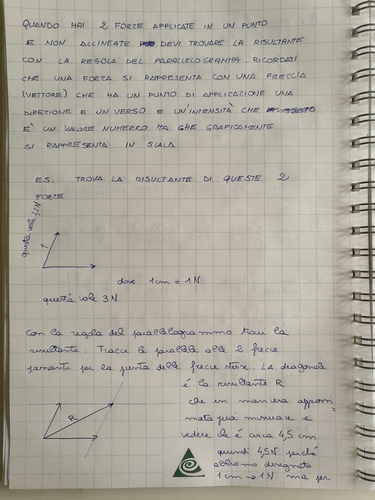 QUANDO HAI 2 FORZE APPLICATE IN UN PUNTO
E NON ALLINEATE DEVI TROVARE LA RISULTANTE
CON LA REGOLA DEL PARALLELOGRAMMA. RICORDATI
CHE UNA FORZA SI RAPPRESENTA CON UNA FRECCIA
(VETTORE) CHE HA UN PUNTO DI APPLICAZIONE UNA
DIREZIONE E UN VERSO E UN'INTENSITÀ CHE
E' UN VALORE NUMERICO MA CHE GRAFICAMENTE
SI RAPPRESENTA IN SCALA
ES. TROVA LA RISULTANTE DI QUESTE 2
FORZE
questa vale
dove 1 cm = 1 N
questa vale 3 N
Con la regola del parallelogramma trovi la
risultante. Tracci le parallele alle 2 frecce
passante per la punta delle frecce stesse. LA diagonale
è la risultante R
che in maniera appros=
mata puoi misurare e
vedere che è circa 4,5 cm
R
quindi 4,5 N perché
abbiamo disegnato
1 cm → 1 N ma per